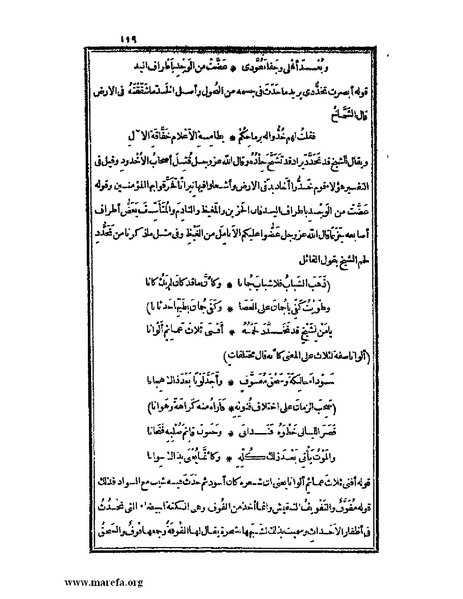 ١١٩
وبعد أهلى وجفا عودى * عضت من الوجد بأطراف اليد
قوله أبصرت تخددى يريد ما حدث فى جسمه من النحول وأصل الخد ما شققته فى الارض
قال الشماخ
فقلت لهم خدوا له برماحكم * بطامسة الأعلام خفاقة الآل
ويقال للشيخ قد تخدد يراد قد تشنج جلده وقال الله عز وجل قتل أصحاب الأخدود وقيل فى
التفسير هؤلاء قوم خدوا أخاديد فى الارض وأشعلوا فيها نيرانا فحرقوا بها المؤمنين وقوله
عضت من الوجد بأطراف اليد فان الحزين والمغيظ والنادم والمتأسف يعض أطراف
أصابعه جزعا قال الله عز وجل عضوا عليكم الأنامل من الغيظ وفى مثل ما ذكرنا من تخدد
لحم الشيخ يقول القائل
(ذهب الشباب فلا شباب جمانا * وكأن ما قد كان لم يك كانا
وطويت كفى يا جمان على العصا * وكفى جمان بطيها حدثانا)
يا من لشيخ قد تخدد لحمه * أفنى ثلاث عمائم ألوانا
(ألوانا صفة لثلاث على المعنى كأنه قال مختلفات)
سوداء حالكة وسحق مفوف * وأجد لونا بعد ذاك هجانا
(صحب الزمان على اختلاف فنونه * فأراه منه كراهة وهوانا)
قصر الليالى خطوه فتدانى * وحنون قائم صلبه فتحانى
والموت يأتى بعد ذلك كله * وكأنما يعنى بذاك سوانا
قوله أفنى ثلاث عمائم ألوانا يعنى ان شعره كان أسود ثم حدث فيه شيب مع السواد فذلك
قوله مفوف والتفويف التنقيش وانما أخذ من الفوف وهى النكتة البيضاء التى تحدث
فى أظفار الأحداث وسميت بذلك لشبهها بشجرة يقال لها الفوفة وجمعها فوف والسحق
www.marefa.org